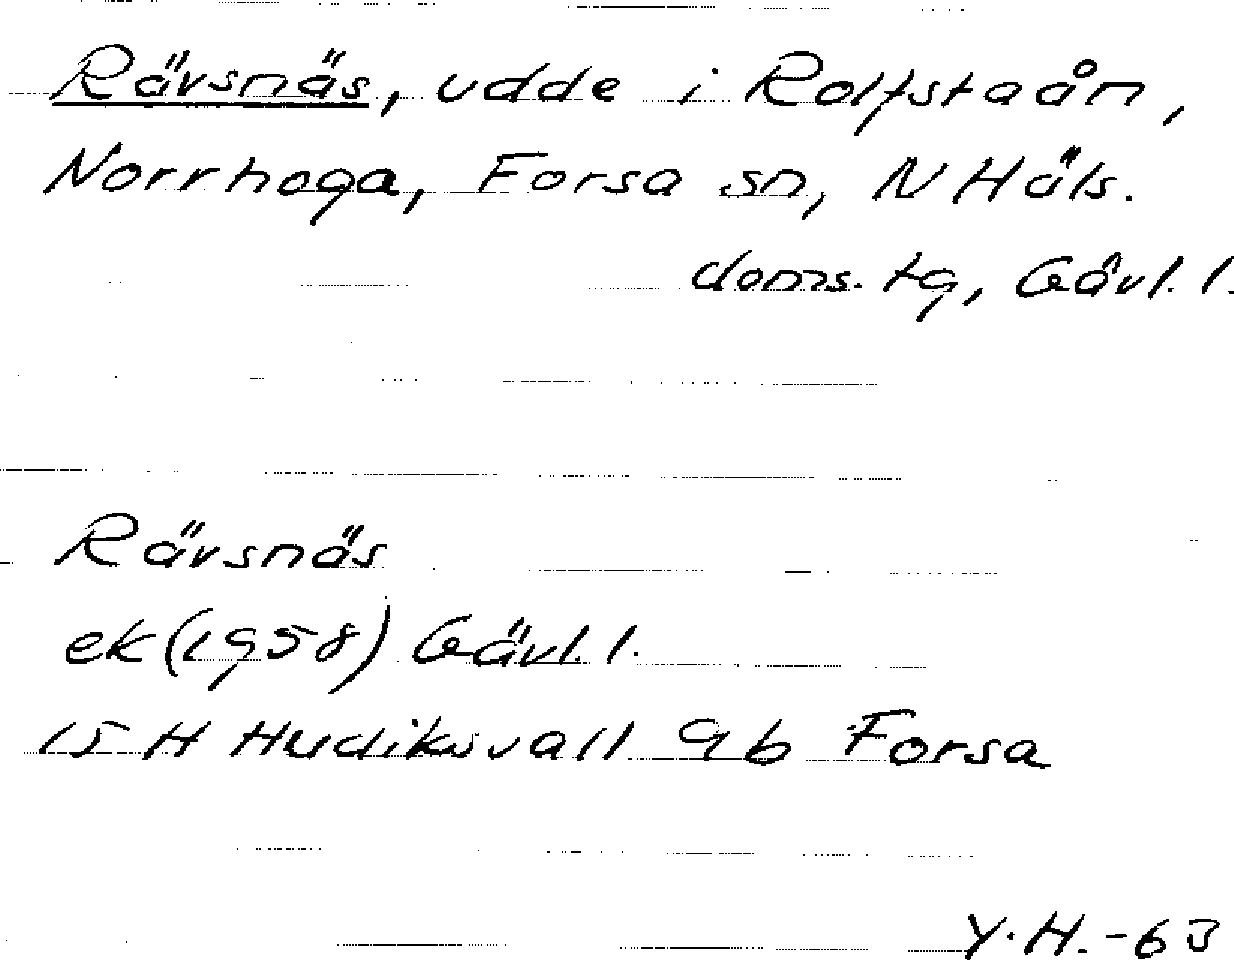 Rävsnäs, udde i Rolfstaån,
Norrhoga, Forsa sn, N Häls.
doms. tg, Gävl. l.
Rävsnäs
ek (1958) Gävl. l.
15 H Hudiksvall 9b Forsa
Y.H.-63